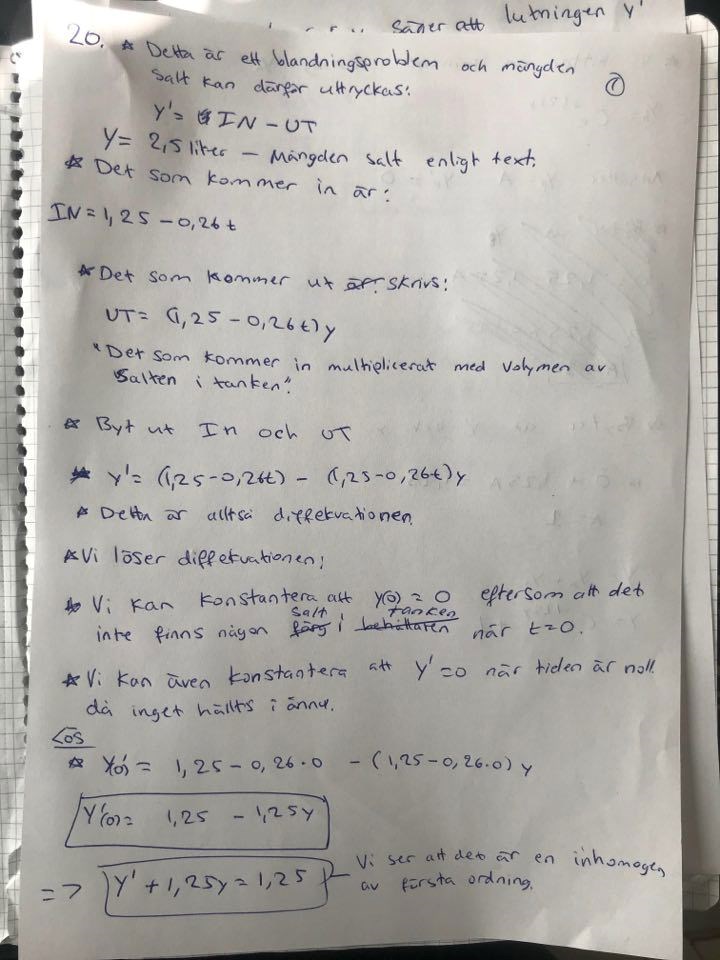 säger att lutningen y'
20. * Detta är ett blandningsproblem och mängden
salt kan därför uttryckas:
①
y' = IN - UT
y = 2,5 liter - Mängden salt enligt text.
* Det som kommer in är:
IN = 1,25 - 0,26t
* Det som kommer ut är: skrivs:
UT = (1,25 - 0,26t)y
"Det som kommer in multiplicerat med volymen av
salten i tanken".
* Byt ut In och UT
* y' = (1,25-0,26t) - (1,25-0,26t)y
* Detta är alltså diffekvationen.
* Vi löser diffekvationen;
* Vi kan konstantera att y(0) = 0 eftersom att det
inte finns någon färg salt i behållaren tanken när t=0.
* Vi kan även konstantera att y'=0 när tiden är noll.
då inget hällts i ännu.
Lös
* y'(0) = 1,25 - 0,26·0 - (1,25-0,26·0)y
y'(0) = 1,25 - 1,25y
=> y' + 1,25y = 1,25
Vi ser att det är en inhomogen
av första ordning.